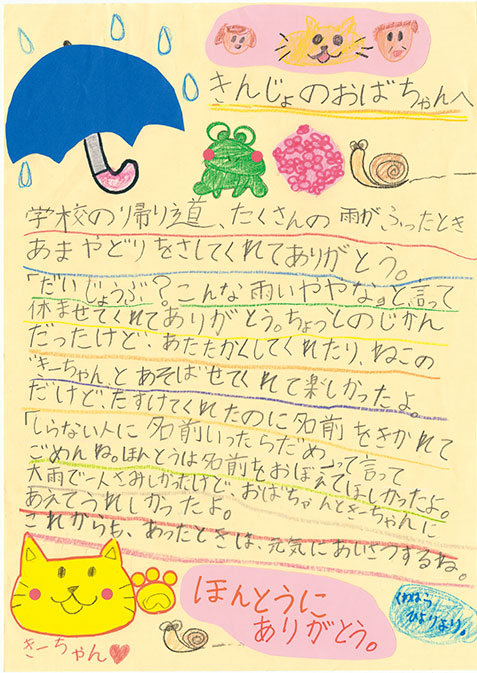 きんじょのおばちゃんへ
学校の帰り道、たくさんの雨がふったとき
あまやどりをさしてくれてありがとう。
「だいじょうぶ？こんな雨いややな。」と言って
休ませてくれてありがとう。ちょっとのじかん
だったけど、あたたかくしてくれたり、ねこの
"きーちゃん"とあそばせてくれて楽しかったよ。
だけど、たすけてくれたのに名前をきかれて
「しらない人に名前いったらだめ」って言って
ごめんね。ほんとうは名前をおぼえてほしかったよ。
大雨で一人さみしかったけど、おばちゃんときーちゃんに
あえてうれしかったよ。
これからも、あったときは、元気にあいさつするね。
ほんとうに
ありがとう。
きーちゃん
ひよりより。